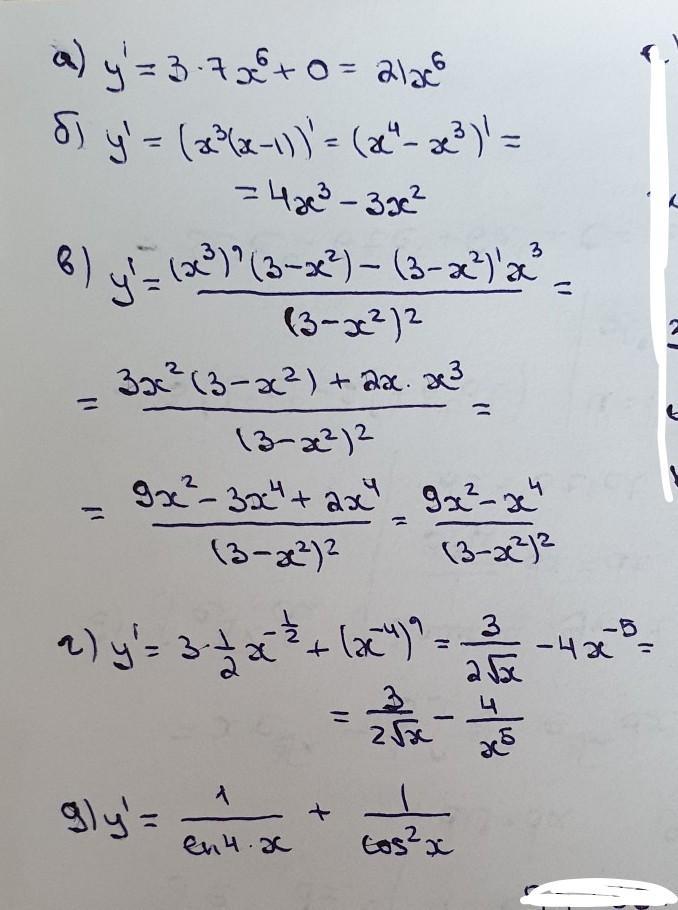 а) y' = 3·7x⁶ + 0 = 21x⁶
б) y' = (x³(x-1))' = (x⁴ - x³)' =
= 4x³ - 3x²
в) y' = ((x³)'(3-x²) - (3-x²)'x³)/(3-x²)² =
= (3x²(3-x²) + 2x·x³)/(3-x²)² =
= (9x² - 3x⁴ + 2x⁴)/(3-x²)² = (9x² - x⁴)/(3-x²)²
г) y' = 3·1/2 x^(-1/2) + (x⁻⁴)' = 3/(2√x) - 4x⁻⁵ =
= 3/(2√x) - 4/x⁵
д) y' = 1/(ln4·x) + 1/(cos²x)